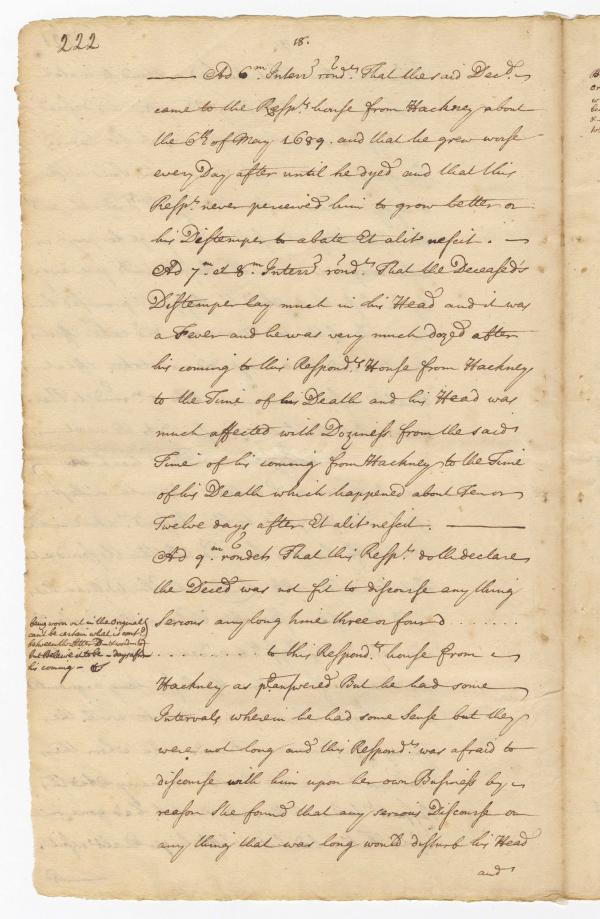 222
18.
Ad 6m. Interr. rondet. That the said Decd.
came to the Respts. house from Hackney about
the 6th of May 1689. and that he grew worse
every Day after until he dyed and that this
Respt. never perceived him to grow better or
his Distemper to abate Et alit nescit. —
Ad 7m. et 8m. Interr. rondet. That the Deceased's
Distemper lay much in his Head and it was
a Fever and he was very much dozed after
his coming to this Respondts. House from Hackney
to the Time of his Death and his Head was
much affected with Doziness from the said
Time of his coming from Hackney to the Time
of his Death which happened about Ten or
Twelve days after Et alit nescit. —
Ad 9m. rondet That this Respt. doth declare
the Deced was not fit to discourse any thing
Serious any long time three or four d . . . . . . .
. . . . . . . . . . to this Respondts. house from
Hackney as pd. answered But he had some
Intervals wherein he had some Sense but they
were not long and this Respondt. was afraid to
discourse with him upon her own Business by
reason She found that any serious Discourse or
any thing that was long would disturb his Head
and
being worn out in the Original
cant be certain what is
between the
but believe it to be - days after
his coming -